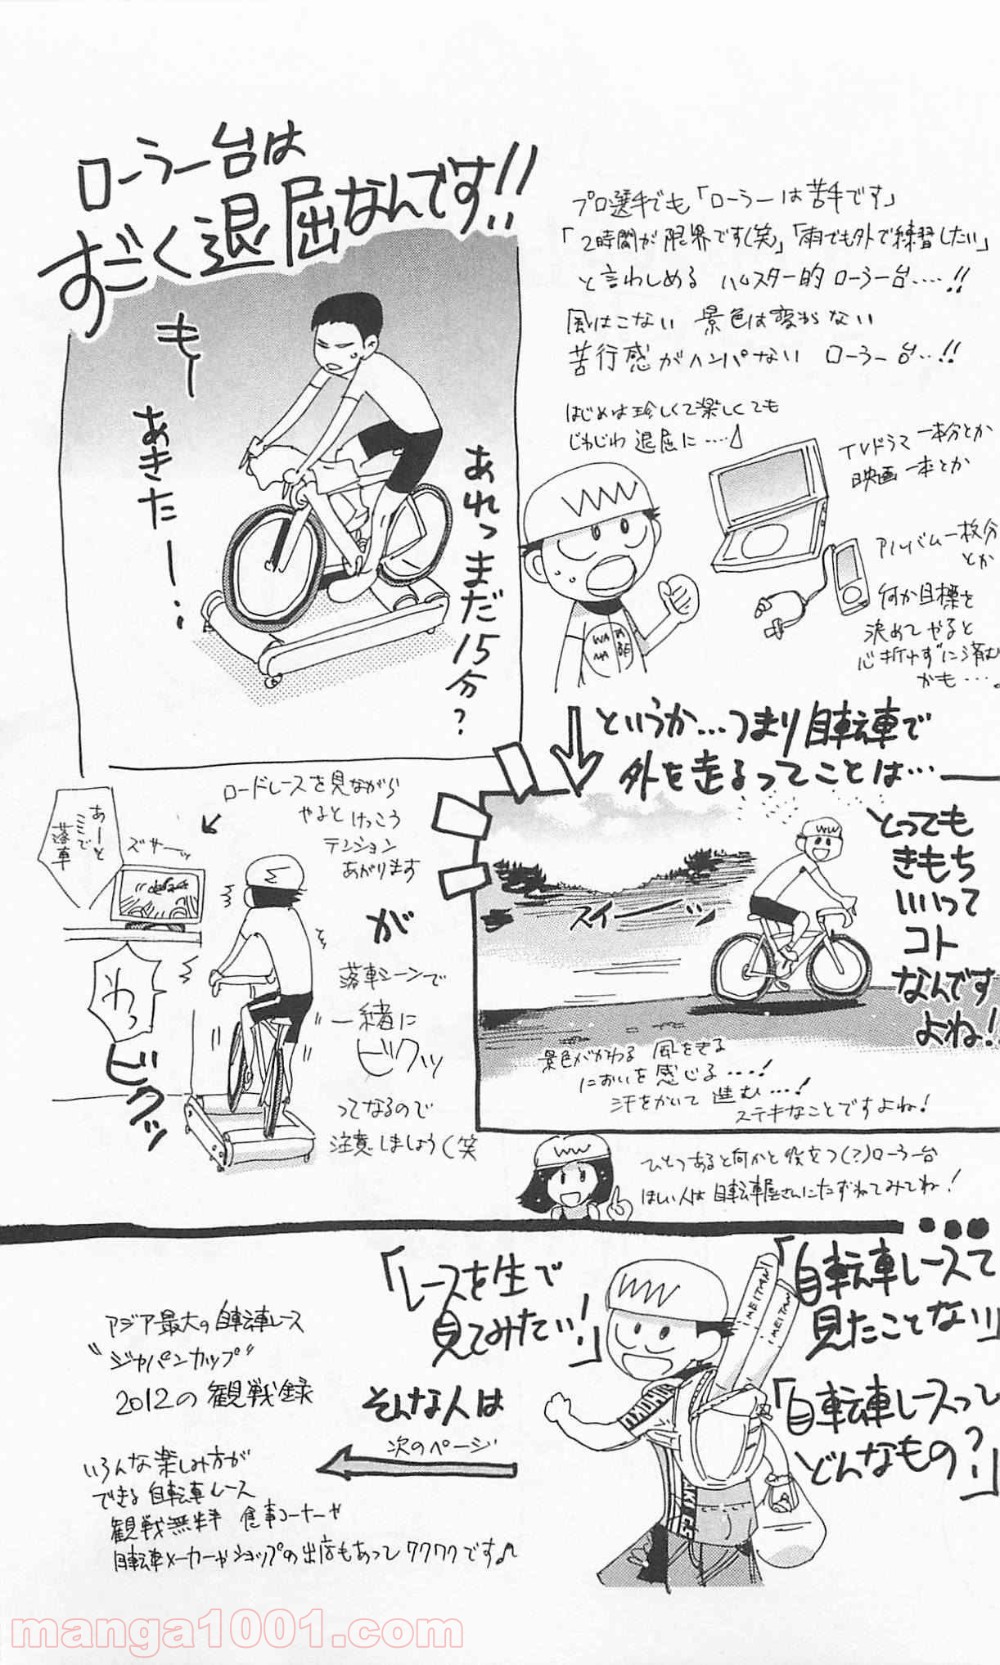 ローラー台は
すごく退屈なんです!!
もー
あきたー…
あれっまだ15分?
プロ選手でも「ローラーは苦手です」
「2時間が限界です(笑)」「雨でも外で練習したい」
と言わしめる ハムスター的ローラー台……!!
風はこない 景色は変わらない
苦行感がハンパない ローラー台…!!
はじめは珍しくて楽しくても
じわじわ退屈に……
TVドラマ一本分とか
映画一本とか
アルバム一枚分
とか
何か目標を
決めてやると
心折れずに済む
かも…。
WA
NA
というか…つまり自転車で
外を走るってことは…
とっても
きもち
いいって
コト
なんです
よね!
スイーーッ
景色がかわる 風をきる
においを感じる……!
汗をかいて 進む…!
ステキなことですよね!
ロードレースを見ながら
やると けっこう
テンション
あがります
が
落車シーンで
一緒に
ビクッ
ってなるので
注意しましょう(笑
あーっと
ここで
落車
ズサーッ
わっ
ビクッ
ひとつあると何かと役立つ(?)ローラー台
ほしい人は自転車屋さんにたずねてみてね!
「自転車レースて
見たことない」
「自転車レースって
どんなもの?」
「レースを生で
見てみたい!」
そんな人は
次のページ
iMEITAN
iMEITAN
アジア最大の自転車レース
"ジャパンカップ"
2012の観戦録
いろんな楽しみ方が
できる自転車レース
観戦無料 食事コーナーや
自転車メーカーやショップの出店もあってワクワクです♪
manga1001.com